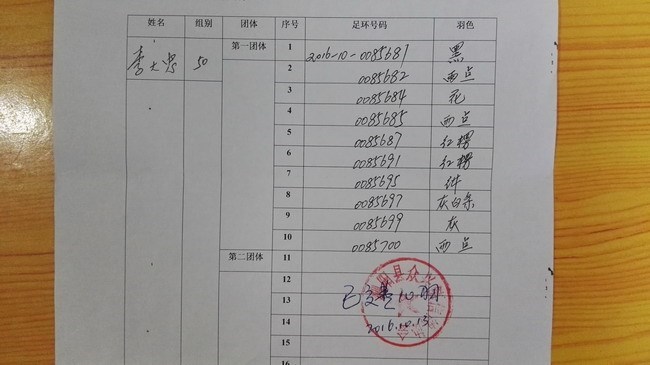 姓名 组别 团体 序号 足环号码 羽色
李大忠 50 第一团体 1 2016-10-0085681 黑
2 0085682 雨点
3 0085684 花
4 0085685 雨点
5 0085687 红楞
6 0085691 红楞
7 0085695 绛
8 0085697 灰白条
9 0085699 灰
10 0085700 雨点
第二团体 11
12
13 已交 10羽
14 2016.10.13
15
16
阳县众